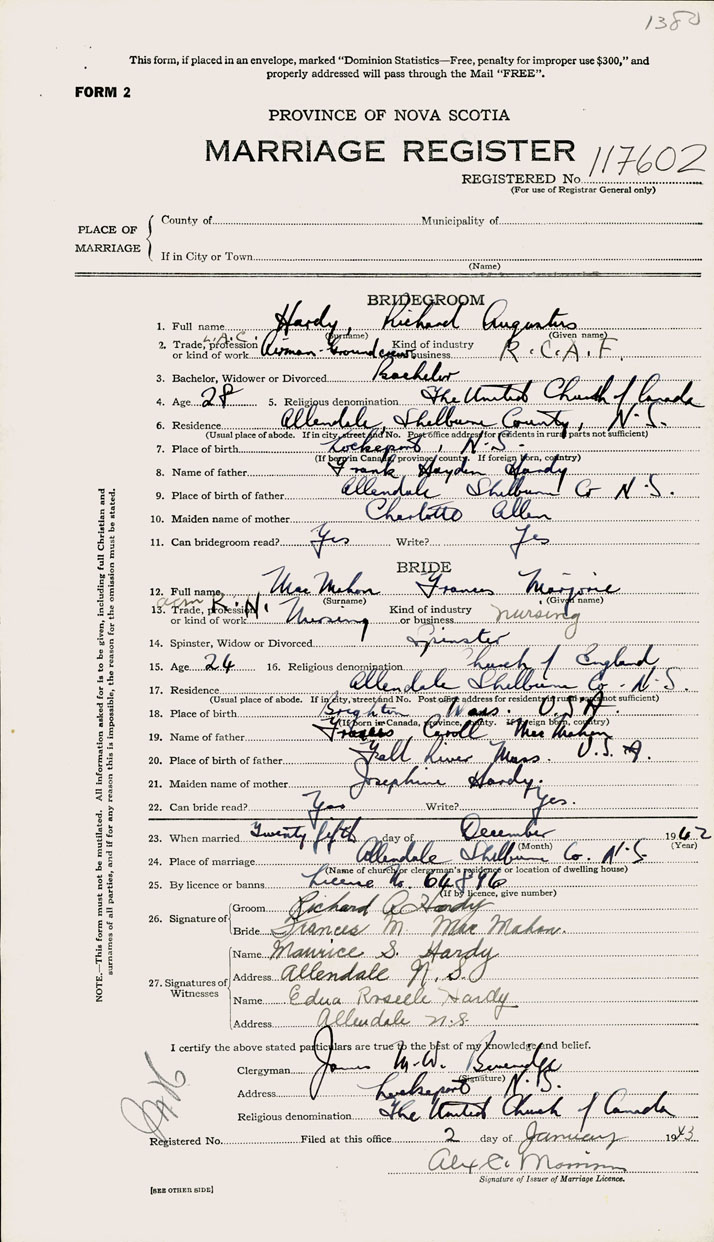 1380
This form, if placed in an envelope, marked "Dominion Statistics—Free, penalty for improper use $300," and
properly addressed will pass through the Mail "FREE".
FORM 2
PROVINCE OF NOVA SCOTIA
MARRIAGE REGISTER
REGISTERED No. 117602
(For use of Registrar General only)
PLACE OF MARRIAGE
County of Municipality of
If in City or Town
(Name)
BRIDEGROOM
1. Full name Hardy, Richard Augustus
(Surname) (Given name)
2. Trade, profession or kind of work L.A.C. Airman-Groundcrew Kind of industry or business R.C.A.F.
3. Bachelor, Widower or Divorced Bachelor
4. Age 28 5. Religious denomination The United Church of Canada
6. Residence Allendale, Shelburne County, N.S.
(Usual place of abode. If in city, street and No. Post office address for residents in rural parts not sufficient)
7. Place of birth Lockeport, N.S.
(If born in Canada, province, county. If foreign born, country)
8. Name of father Frank Hayden Hardy
9. Place of birth of father Allendale Shelburne Co N.S.
10. Maiden name of mother Charlotte Allen
11. Can bridegroom read? Yes Write? Yes
BRIDE
12. Full name Mac Mahon Frances Marjorie
(Surname) (Given name)
13. Trade, profession or kind of work R.N. Nursing Kind of industry or business nursing
14. Spinster, Widow or Divorced Spinster
15. Age 24 16. Religious denomination Church of England
17. Residence Allendale Shelburne Co. N.S.
(Usual place of abode. If in city, street and No. Post office address for residents in rural parts not sufficient)
18. Place of birth Brighton Mass. U.S.A.
(If born in Canada, province, county. If foreign born, country)
19. Name of father Francis Caroll Mac Mahon
20. Place of birth of father Fall River Mass. U.S.A.
21. Maiden name of mother Josephine Hardy.
22. Can bride read? Yes Write? Yes.
23. When married Twenty fifth day of December 1942
(Month) (Year)
24. Place of marriage Allendale Shelburne Co. N.S.
(Name of church or clergyman's residence or location of dwelling house)
25. By licence or banns License No. 64896
(If by licence, give number)
26. Signature of
Groom Richard A. Hardy
Bride Frances M. Mac Mahon.
27. Signatures of Witnesses
Name Maurice S. Hardy
Address Allendale N.S.
Name Edna Roselle Hardy
Address Allendale N.S.
I certify the above stated particulars are true to the best of my knowledge and belief.
Clergyman James M.W.
(Signature)
Address Lockeport N.S.
Religious denomination The United Church of Canada
Registered No. Filed at this office 2 day of January 1943
Alex C.
Signature of Issuer of Marriage Licence.
[SEE OTHER SIDE]
NOTE.—This form must not be mutilated. All information asked for is to be given, including full Christian and
surnames of all parties, and if for any reason this is impossible, the reason for the omission must be stated.